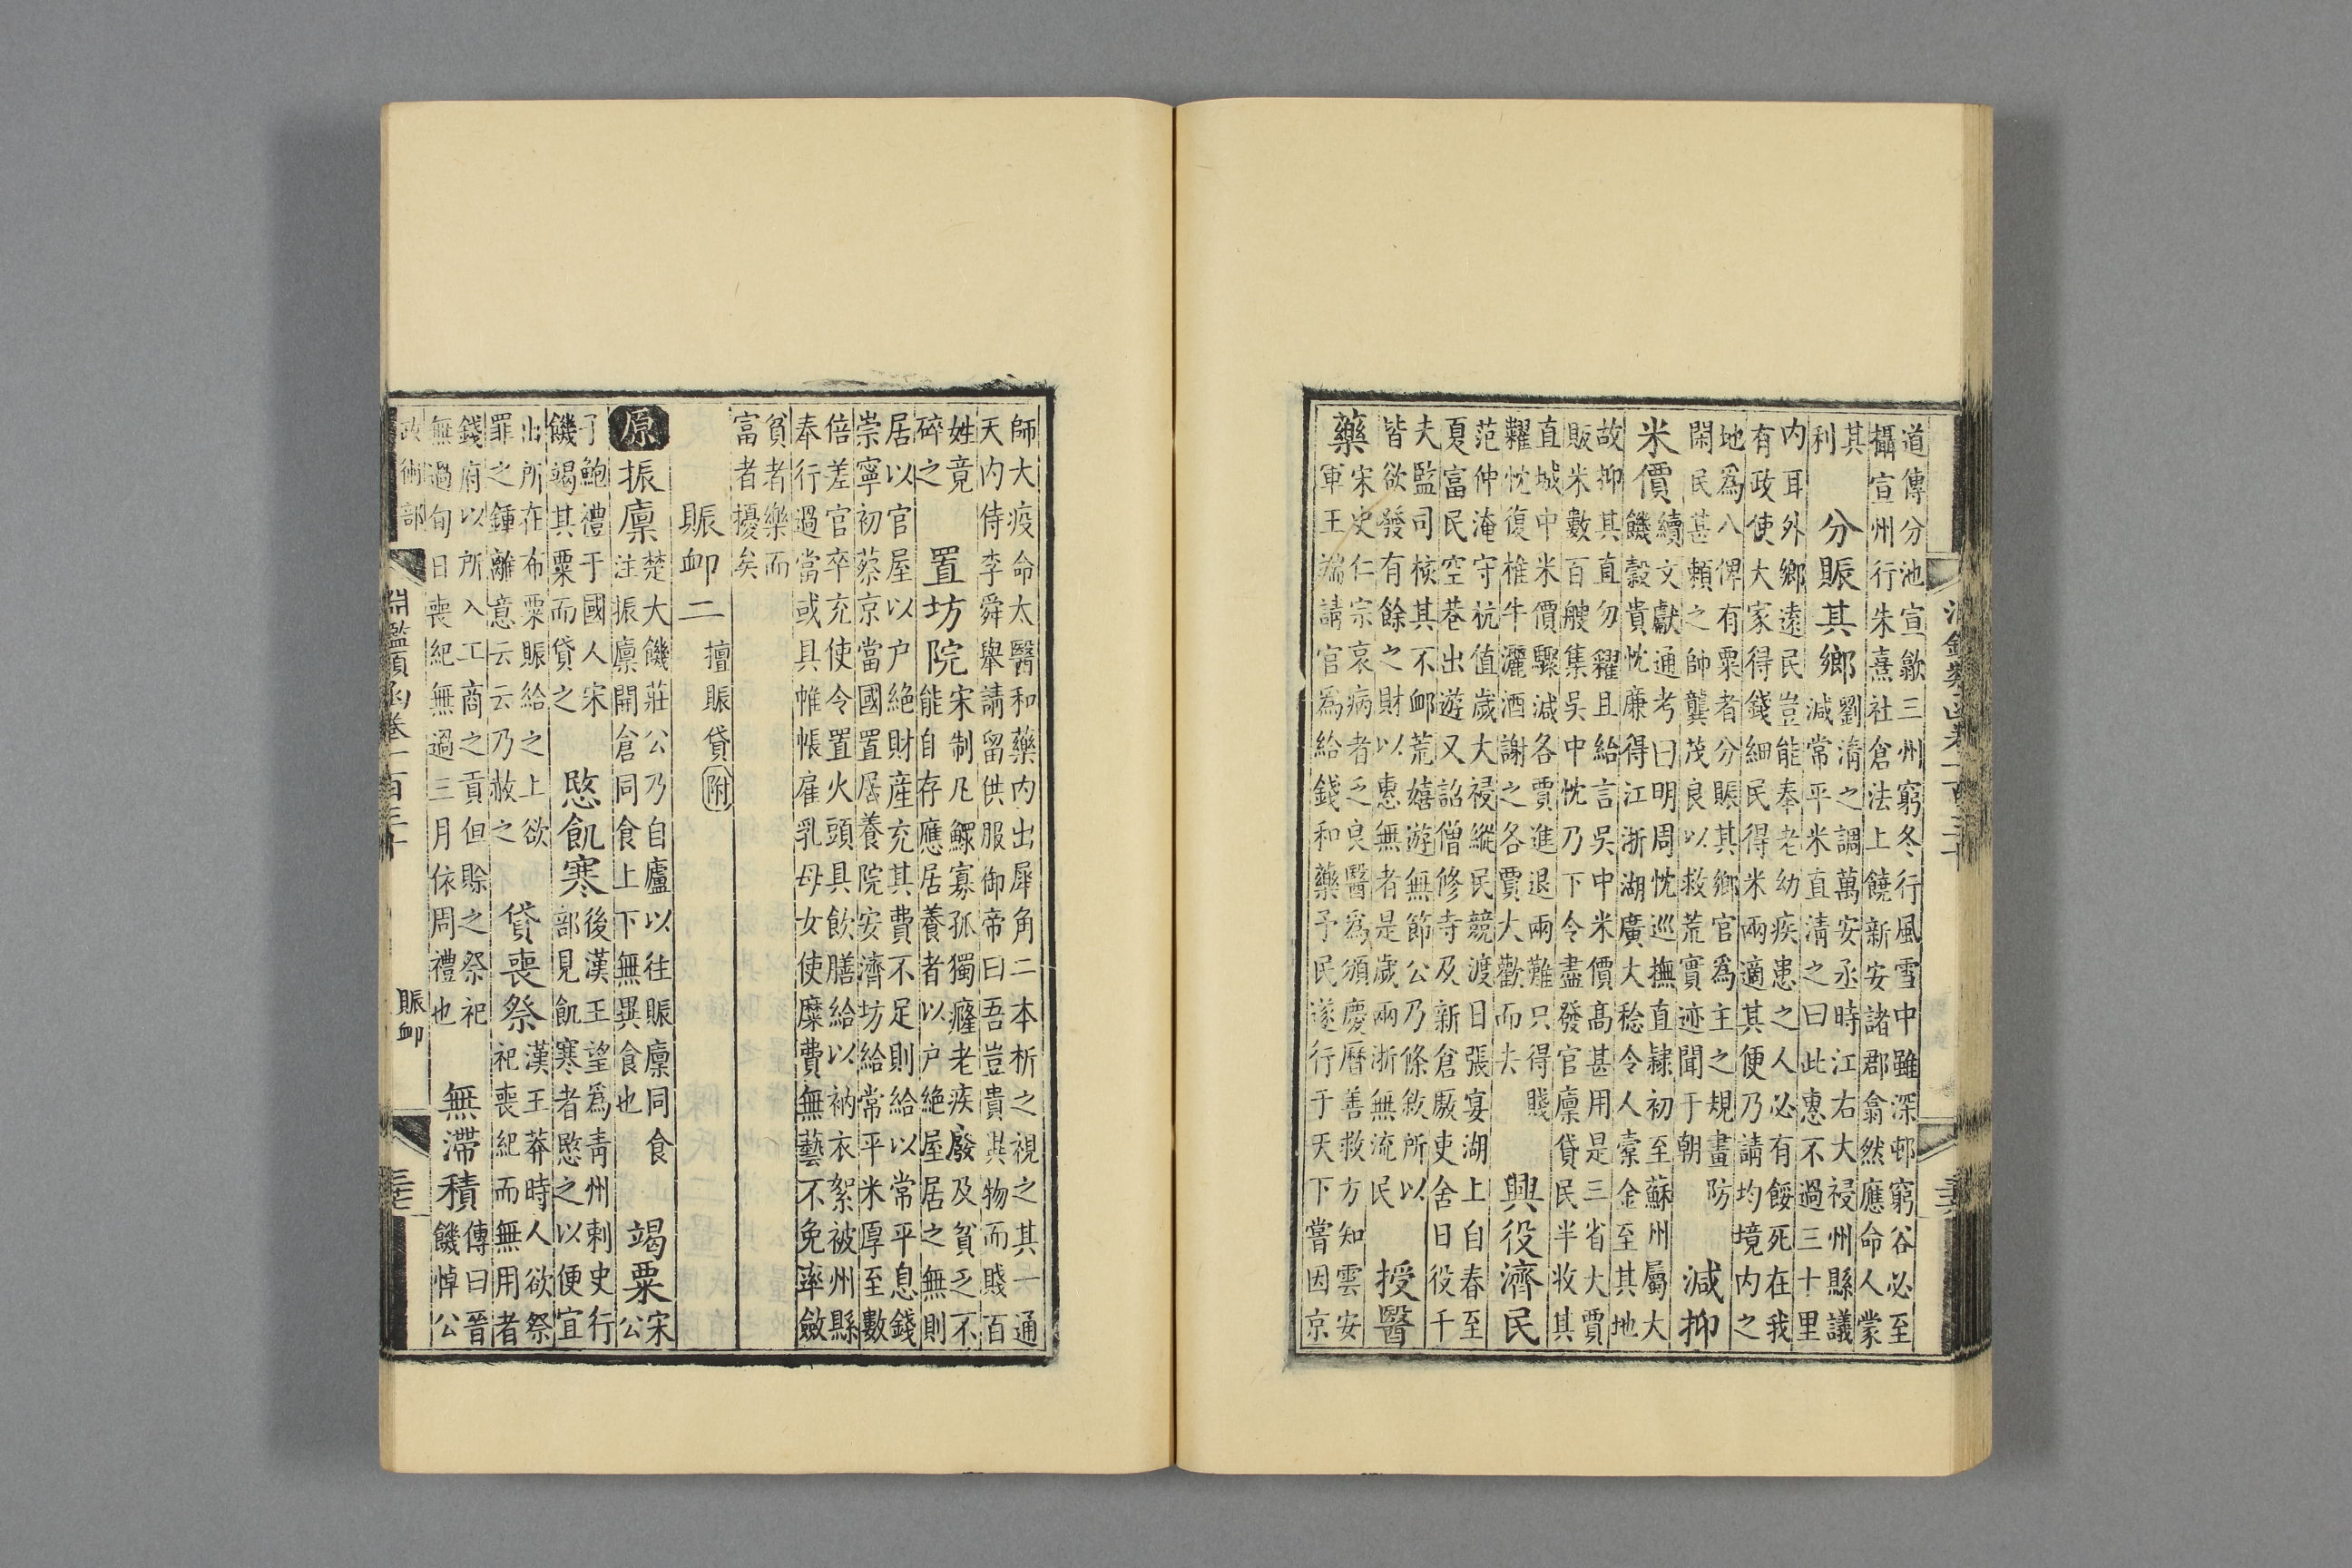 道傳分池宣歙三州窮冬行風雪中雖深邨窮谷必至
攝宣州行朱熹社倉法上饒新安諸郡翕然應命人蒙
其
利
分賑其鄉
劉淸之調萬安丞時江右大祲州縣議
減常平米直淸之曰此惠不過三十里
内耳外鄉遠民豈能奉老幼疾患之人必有餒死在我
有政使大家得錢細民得米兩適其便乃請均境内之
地爲八俾有粟者分賑其鄉官爲主之規畫防
閑民甚賴之帥龔茂良以救荒實迹聞于朝
減抑
米價
續文獻通考曰明周忱巡撫直隸初至蘇州屬大
饑穀貴忱廉得江浙湖廣大稔令人橐金至其地
故抑其直勿糴且給言吳中米價高甚用是三省大賈
販米數百艘集吳中忱乃下令盡發官廩貸民半收其
直城中米價驟減各賈進退兩難只得賤
糶忱復椎牛灑酒謝之各賈大歡而去
興役濟民
范仲淹守杭值歲大祲縱民競渡日張宴湖上自春至
夏富民空巷出遊又詔僧修寺及新倉廒吏舍日役千
夫監司核其不卹荒嬉遊無節公乃條敘所以
皆欲發有餘之財以惠無者是歲兩浙無流民
授醫
藥
宋史仁宗哀病者乏良醫爲頒慶曆善救方知雲安
軍王端請官爲給錢和藥予民遂行于天下嘗因京
師大疫命太醫和藥内出犀角二本析之視之其一通
天内侍李舜舉請留供服御帝曰吾豈貴異物而賤百
姓竟
碎之
置坊院
宋制凡鰥寡孤獨癃老疾廢及貧乏不
能自存應居養者以户絶屋居之無則
居以官屋以户絶財產充其費不足則給以常平息錢
崇寧初蔡京當國置居養院安濟坊給常平米厚至數
倍差官卒充使令置火頭具飲膳給以衲衣絮被州縣
奉行過當或具帷帳雇乳母女使糜費無藝不免率斂
貧者樂而
富者擾矣
賑卹二 擅賑貸附
原 振廩
楚大饑莊公乃自廬以往賑廩同食
注振廩開倉同食上下無異食也
竭粟
宋公
子鮑禮于國人宋
饑竭其粟而貸之
愍飢寒
後漢王望爲靑州刺史行
部見飢寒者愍之以便宜
出所在布粟賑給之上欲
罪之鍾離意云云乃赦之
貸喪祭
漢王莽時人欲祭
祀喪紀而無用者
錢府以所入工商之貢但賒之祭祀
無過旬日喪紀無過三月依周禮也
無滯積
傳曰晉
饑悼公
政術部
淵鑑類函卷一百三十
賑卹